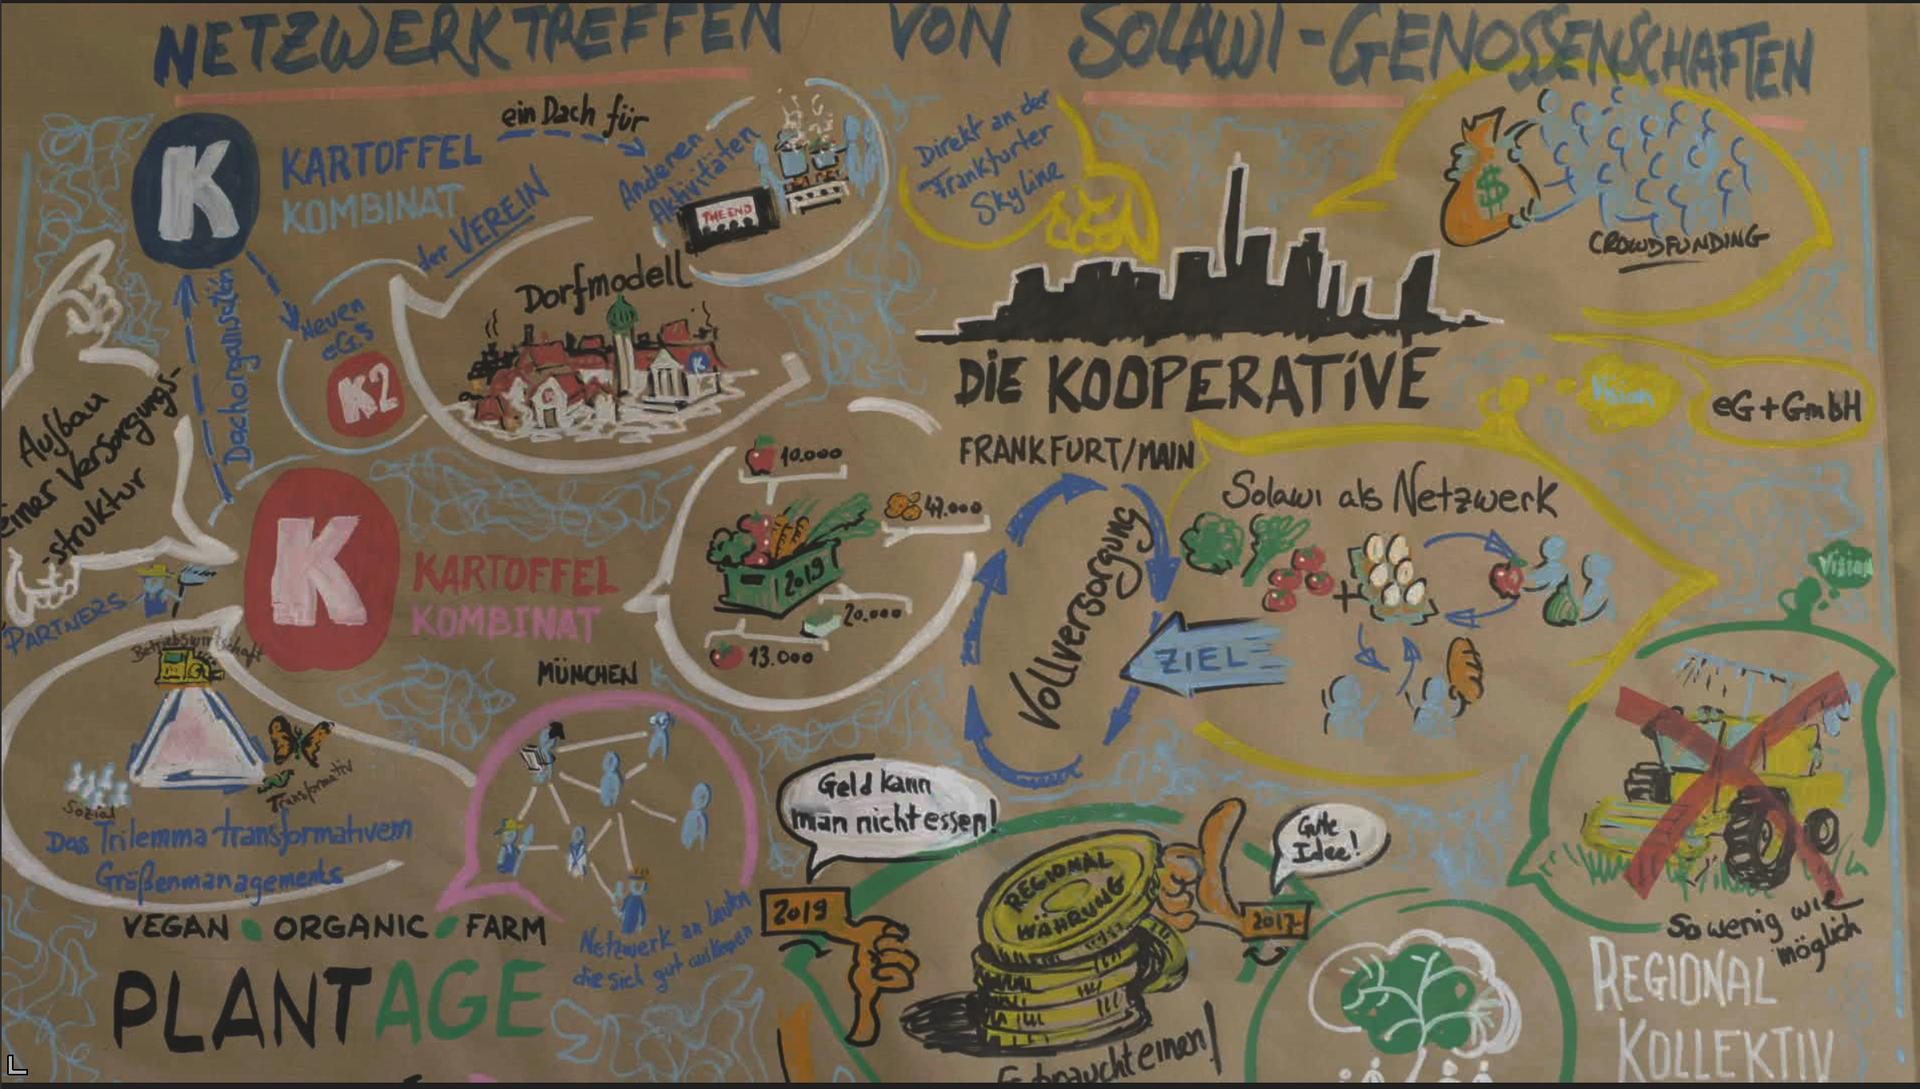 NETZWERKTREFFEN VON SOLAWI-GENOSSENSCHAFTEN
K
KARTOFFEL
KOMBINAT
der VEREIN
ein Dach für
Anderen
Aktivitäten
THE END
Dachorganisation
Neuen
eG.s
K2
Dorfmodell
K
Aufbau
einer Versorgungs-
struktur
PARTNERS
K
KARTOFFEL
KOMBINAT
MÜNCHEN
10.000
47.000
2019
20.000
13.000
Betriebswirtschaft
Sozial
Transformativ
Das Trilemma transformativem
Größenmanagements
Netzwerk an Leuten
die sich gut auskennen
Direkt an der
Frankfurter
Skyline
$
CROWDFUNDING
DIE KOOPERATIVE
FRANKFURT/MAIN
Vision
eG+GmbH
Solawi als Netzwerk
Vollversorgung
ZIEL
Vision
So wenig wie
möglich
Geld kann
man nicht essen!
Gute
Idee!
2019
REGIONAL
WÄHRUNG
2017
Es braucht einen!
VEGAN ORGANIC FARM
PLANTAGE
REGIONAL
KOLLEKTIV